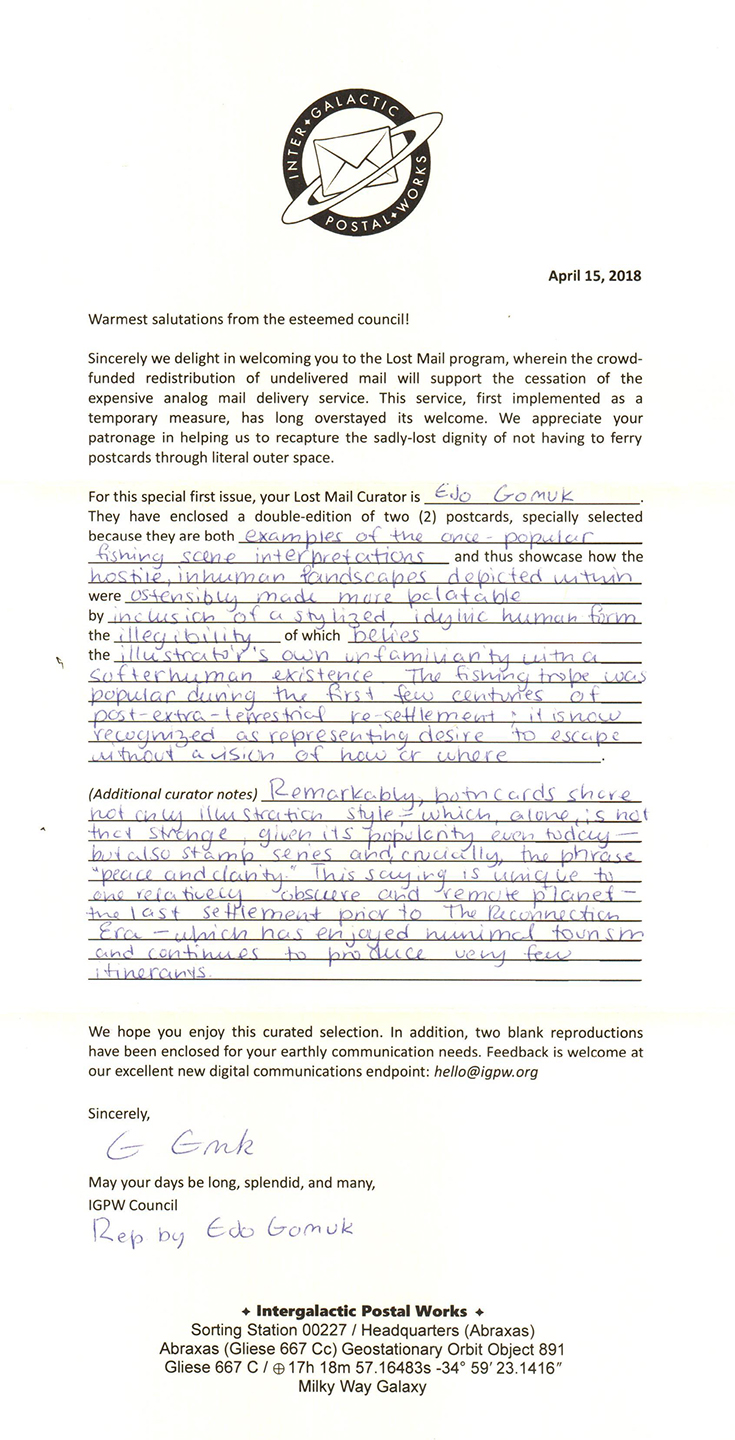 INTER✦GALACTIC
POSTAL✦WORKS
April 15, 2018
Warmest salutations from the esteemed council!
Sincerely we delight in welcoming you to the Lost Mail program, wherein the crowd-
funded redistribution of undelivered mail will support the cessation of the
expensive analog mail delivery service. This service, first implemented as a
temporary measure, has long overstayed its welcome. We appreciate your
patronage in helping us to recapture the sadly-lost dignity of not having to ferry
postcards through literal outer space.
For this special first issue, your Lost Mail Curator is Edo Gomuk.
They have enclosed a double-edition of two (2) postcards, specially selected
because they are both examples of the once-popular
fishing scene interpretations and thus showcase how the
hostile, inhuman landscapes depicted within
were ostensibly made more palatable
by inclusion of a stylized, idyllic human form
the illegibility of which belies
the illustrator's own unfamiliarity with a
softer human existence. The fishing trope was
popular during the first few centuries of
post-extra-terrestrial re-settlement; it is now
recognized as representing desire to escape
without a vision of how or where.
(Additional curator notes) Remarkably, both cards share
not only illustration style – which, alone, is not
that strange, given its popularity even today –
but also stamp series and, crucially, the phrase
"peace and clarity." This saying is unique to
one relatively obscure and remote planet –
the last settlement prior to The Reconnection
Era – which has enjoyed minimal tourism
and continues to produce very few
itinerants.
We hope you enjoy this curated selection. In addition, two blank reproductions
have been enclosed for your earthly communication needs. Feedback is welcome at
our excellent new digital communications endpoint: hello@igpw.org
Sincerely,
G Gmk
May your days be long, splendid, and many,
IGPW Council
Rep by Edo Gomuk
✦ Intergalactic Postal Works ✦
Sorting Station 00227 / Headquarters (Abraxas)
Abraxas (Gliese 667 Cc) Geostationary Orbit Object 891
Gliese 667 C / ⊕ 17h 18m 57.16483s -34° 59′ 23.1416″
Milky Way Galaxy